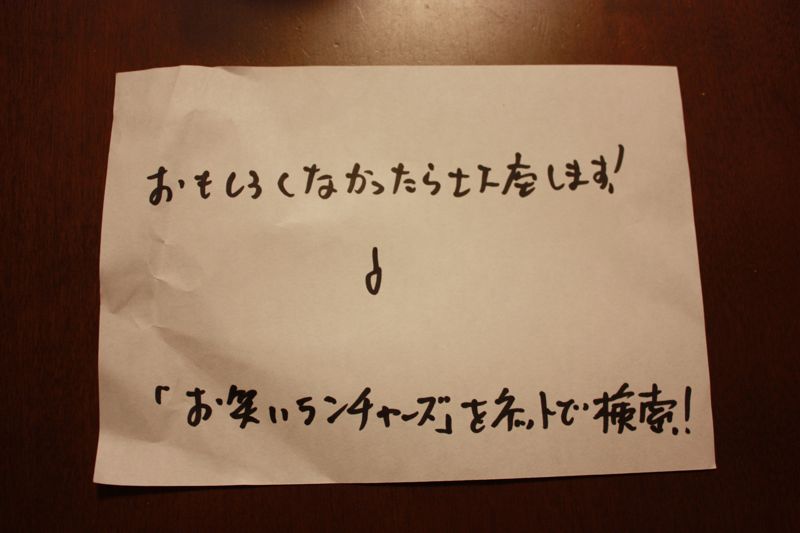 おもしろくなかったら土下座します!
「お笑いランチャーズ」をネットで検索!!